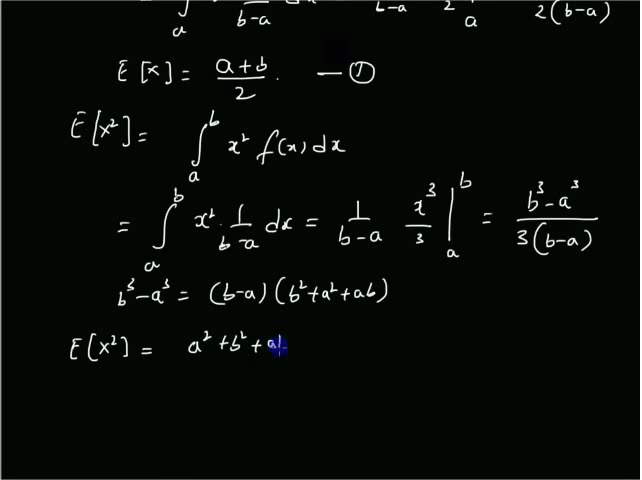 ∫ₐ b-a b-a 2 a 2(b-a)
E[x] = (a+b)/2. — ①
E[x²] = ∫ₐᵇ x² f(x) dx
= ∫ₐᵇ x². 1/(b-a) dx = 1/(b-a) x³/3 |ₐᵇ = (b³-a³)/(3(b-a))
b³-a³ = (b-a)(b²+a²+ab)
E[x²] = a²+b²+a